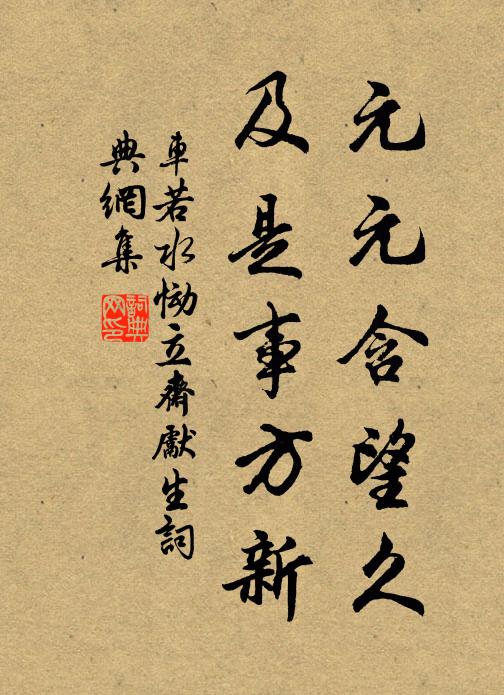 元元含望久
及是事方新
車若水慟立齋獻生詞
典網集
詞典
网印